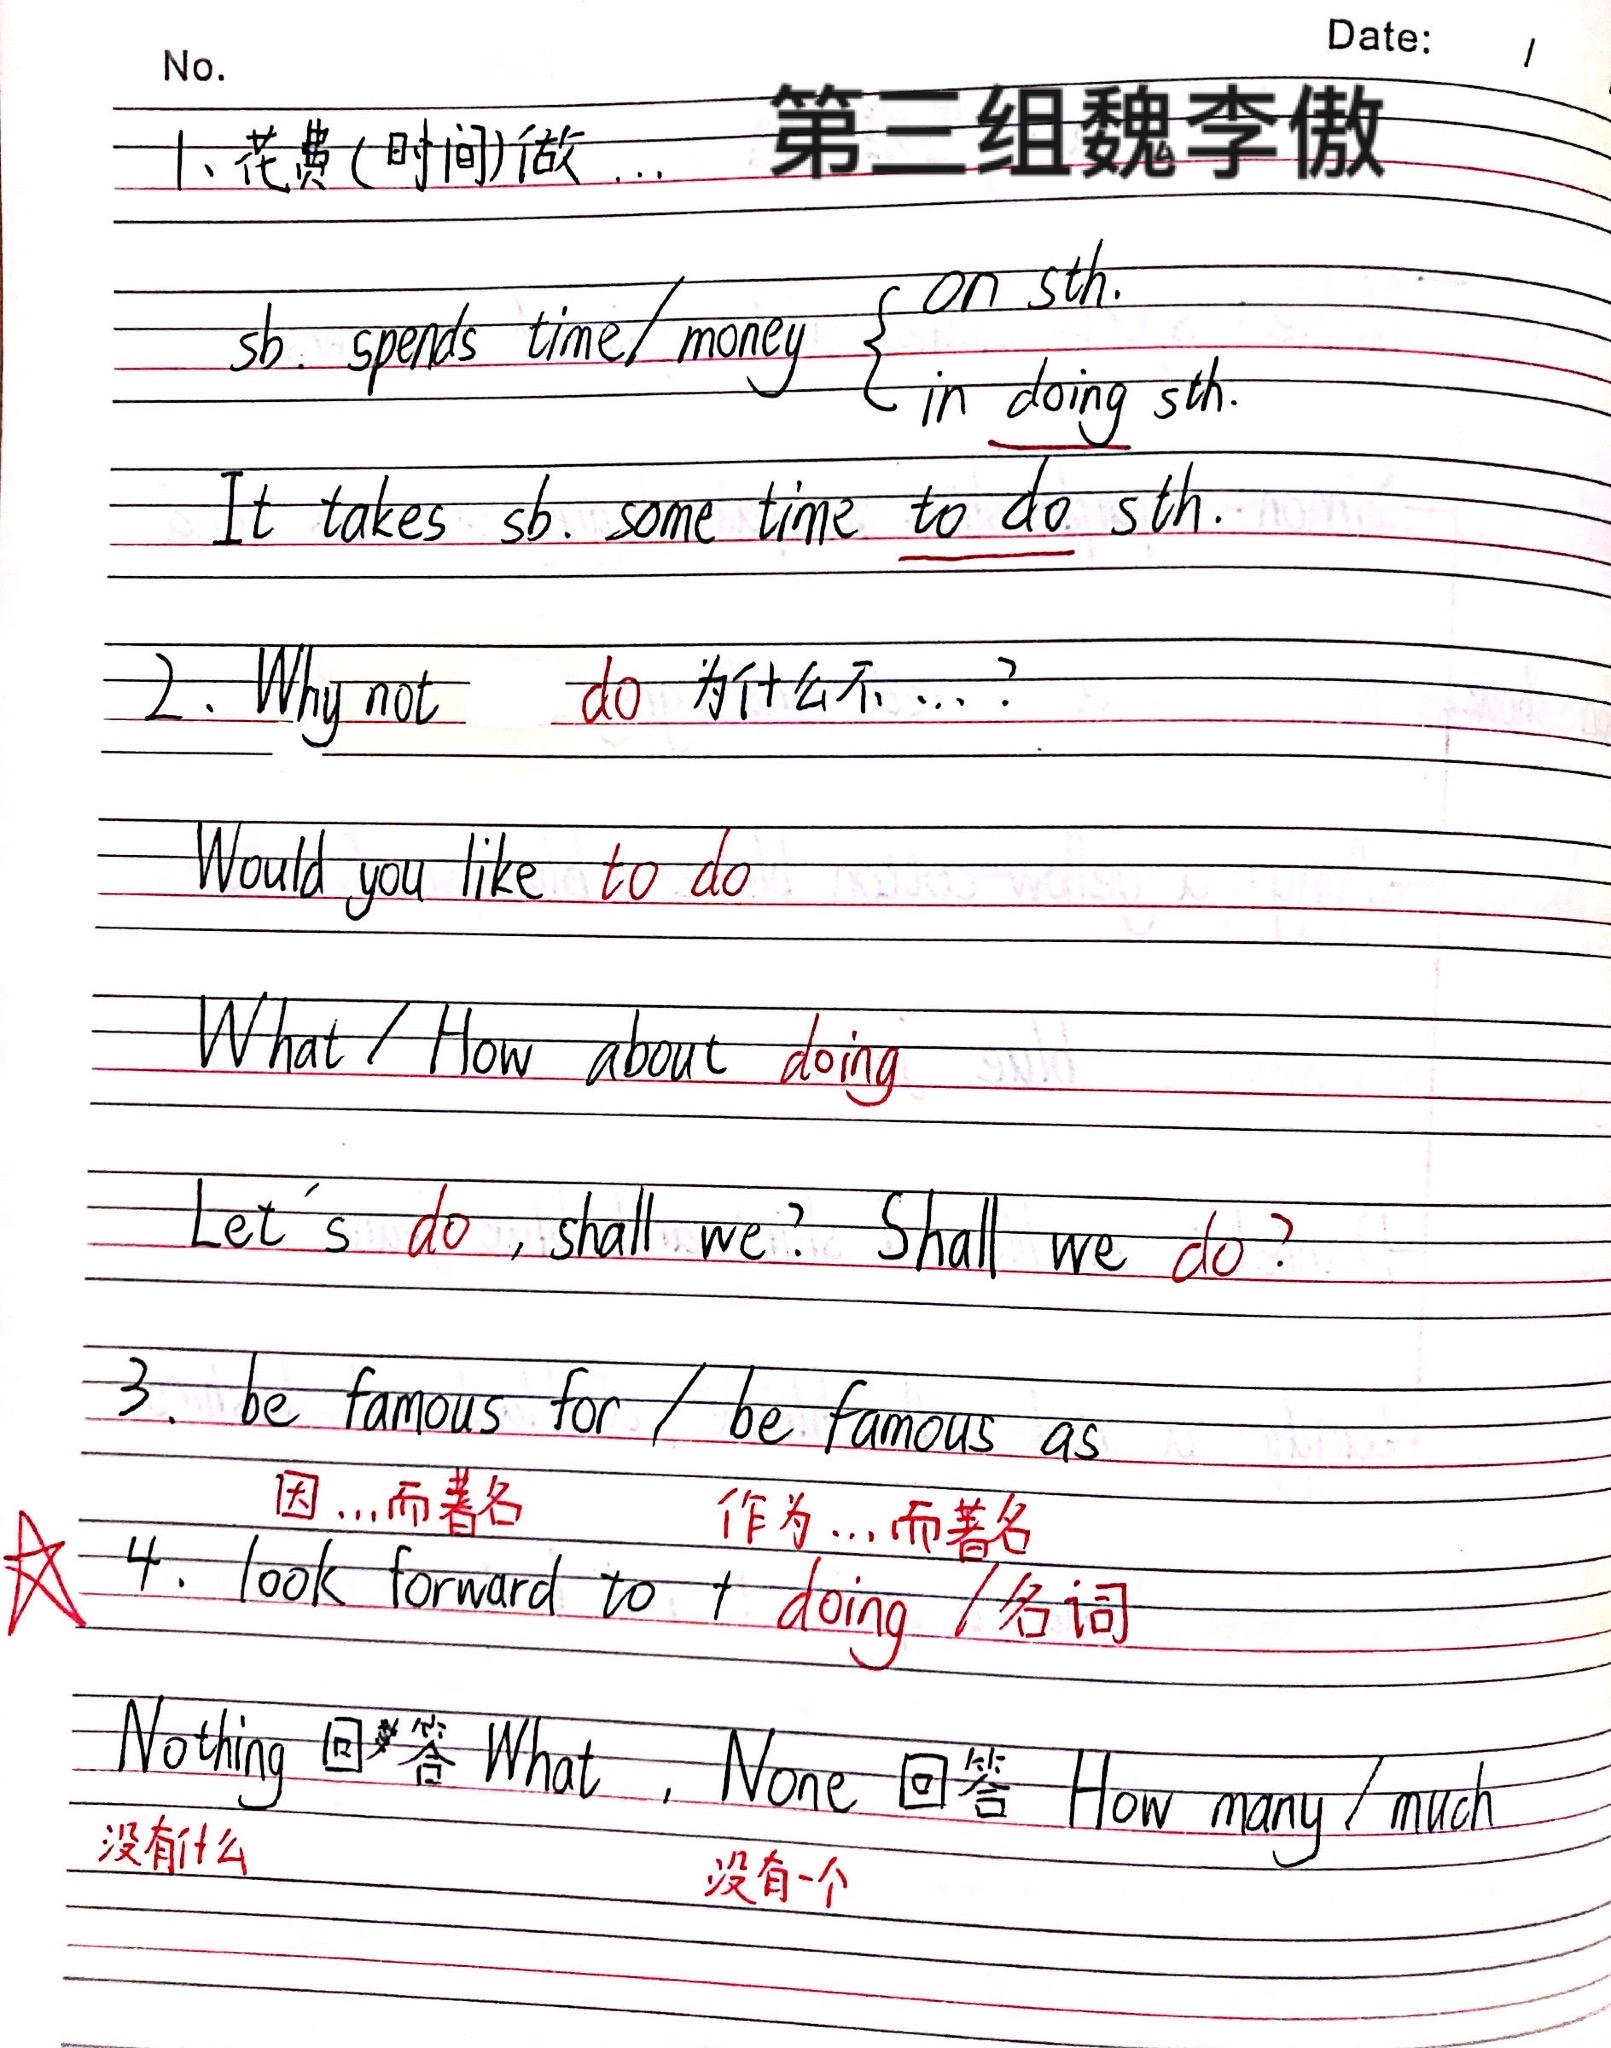 No.
Date: /
第三组魏李傲
1、花费(时间)做...
sb. spends time/money { on sth.
in doing sth.
It takes sb. some time to do sth.
2. Why not do 为什么不...?
Would you like to do
What / How about doing
Let's do, shall we? Shall we do?
3. be famous for / be famous as
因...而著名 作为...而著名
4. look forward to + doing /名词
Nothing 回答 What , None 回答 How many / much
没有什么 没有一个